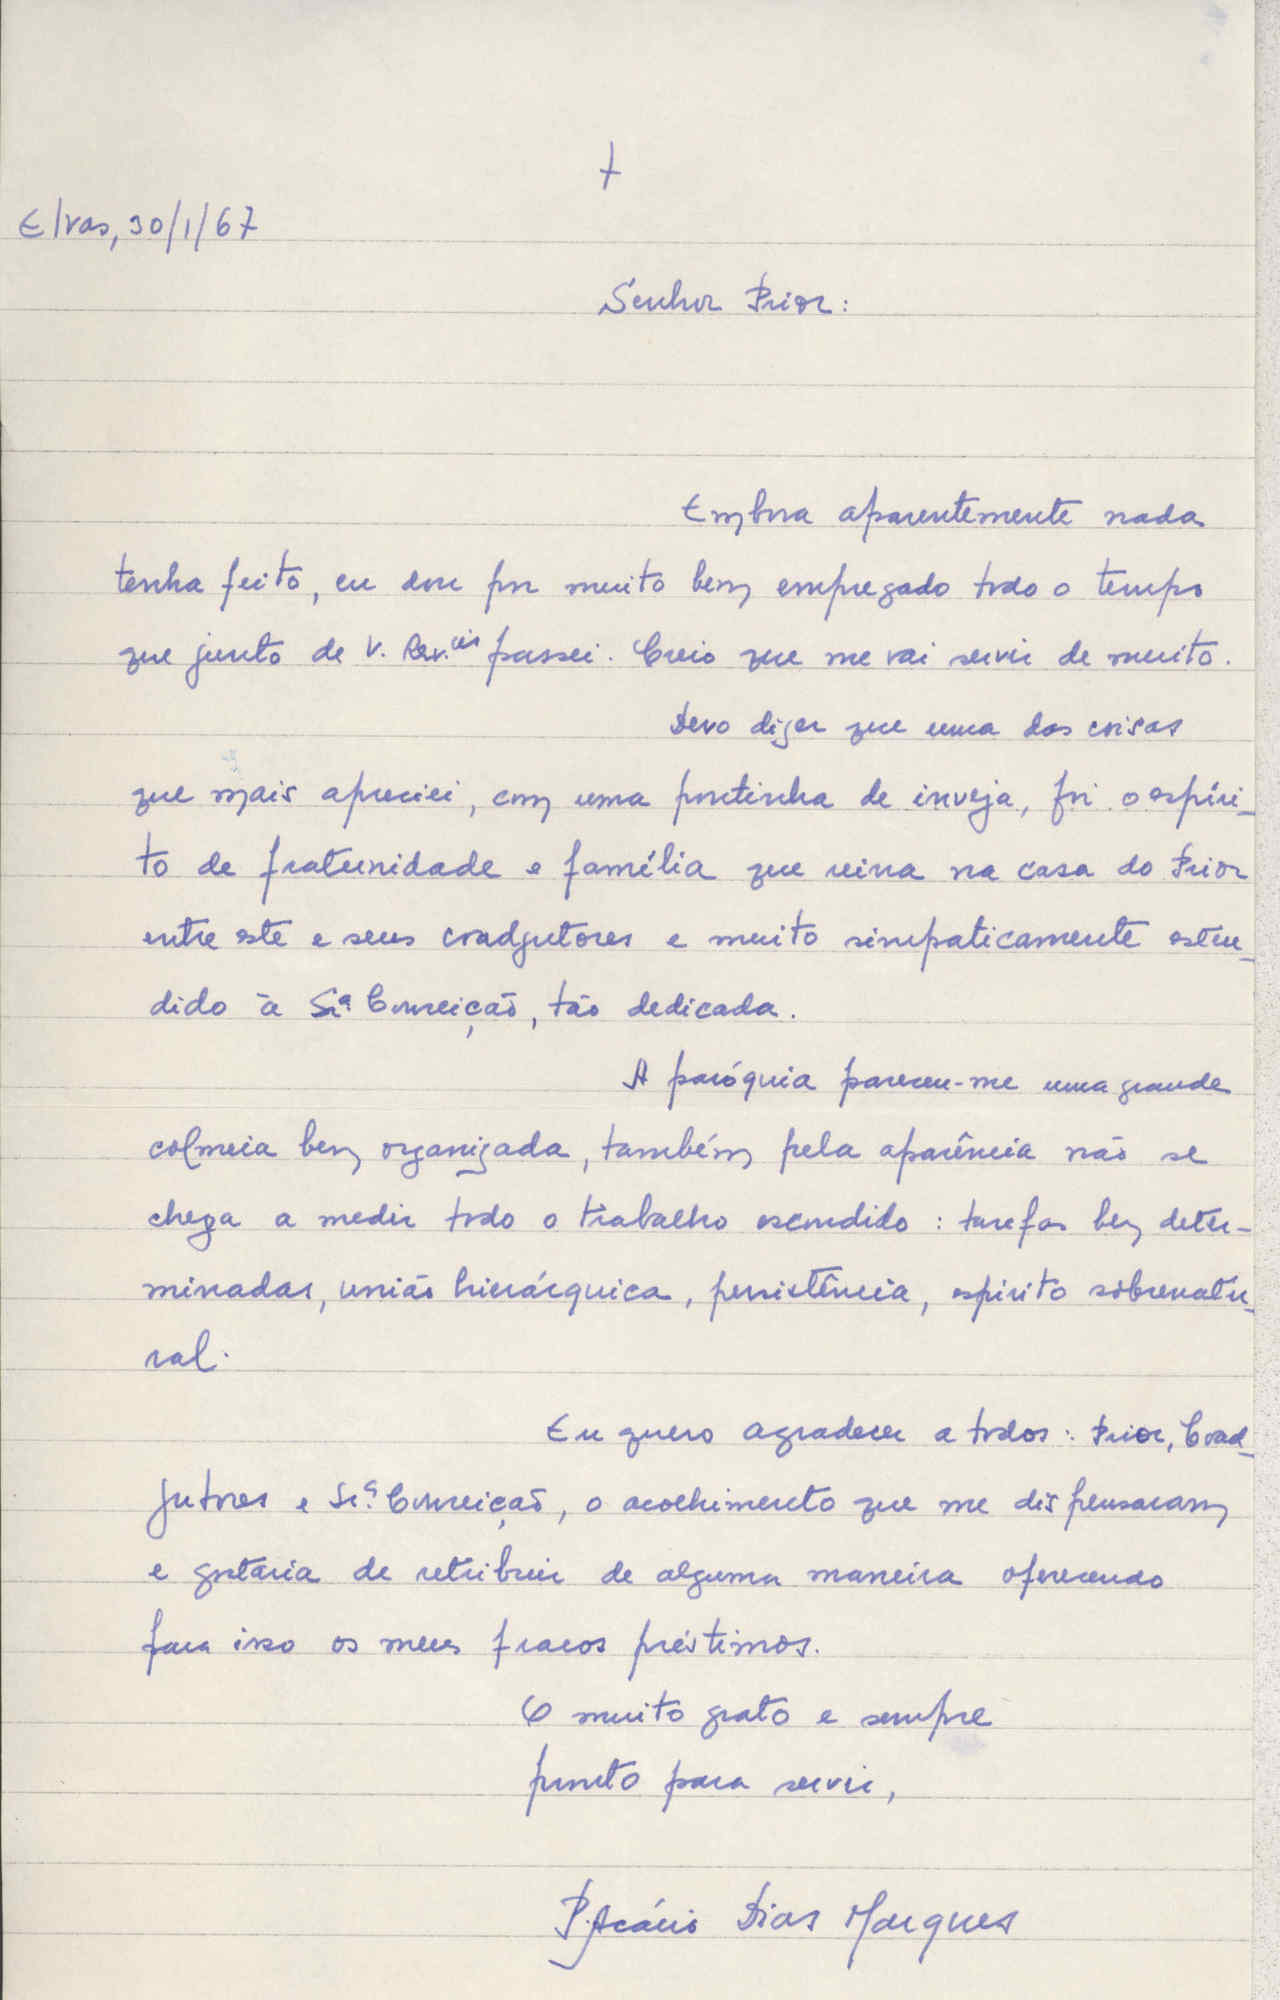 +
Elvas, 30/1/67
Senhor Prior:
Embora aparentemente nada
tenha feito, eu dou por muito bem empregado todo o tempo
que junto de V. Rev.cia passei. Creio que me vai servir de muito.
Devo dizer que uma das coisas
que mais apreciei, com uma pontinha de inveja, foi o espíri-
to de fraternidade e família que reina na casa do Prior
entre este e seus coadjutores e muito simpaticamente esten-
dido à Sr.ª Conceição, tão dedicada.
A paróquia pareceu-me uma grande
colmeia bem organizada, também pela aparência não se
chega a medir todo o trabalho escondido: tarefas bem deter-
minadas, união hierárquica, persistência, espírito sobrenatu-
ral.
Eu quero agradecer a todos: Prior, Coad-
jutores e Sr.ª Conceição, o acolhimento que me dispensaram
e gostaria de retribuir de alguma maneira oferecendo
para isso os meus fracos préstimos.
O muito grato e sempre
pronto para servir,
P. Acácio Dias Marques